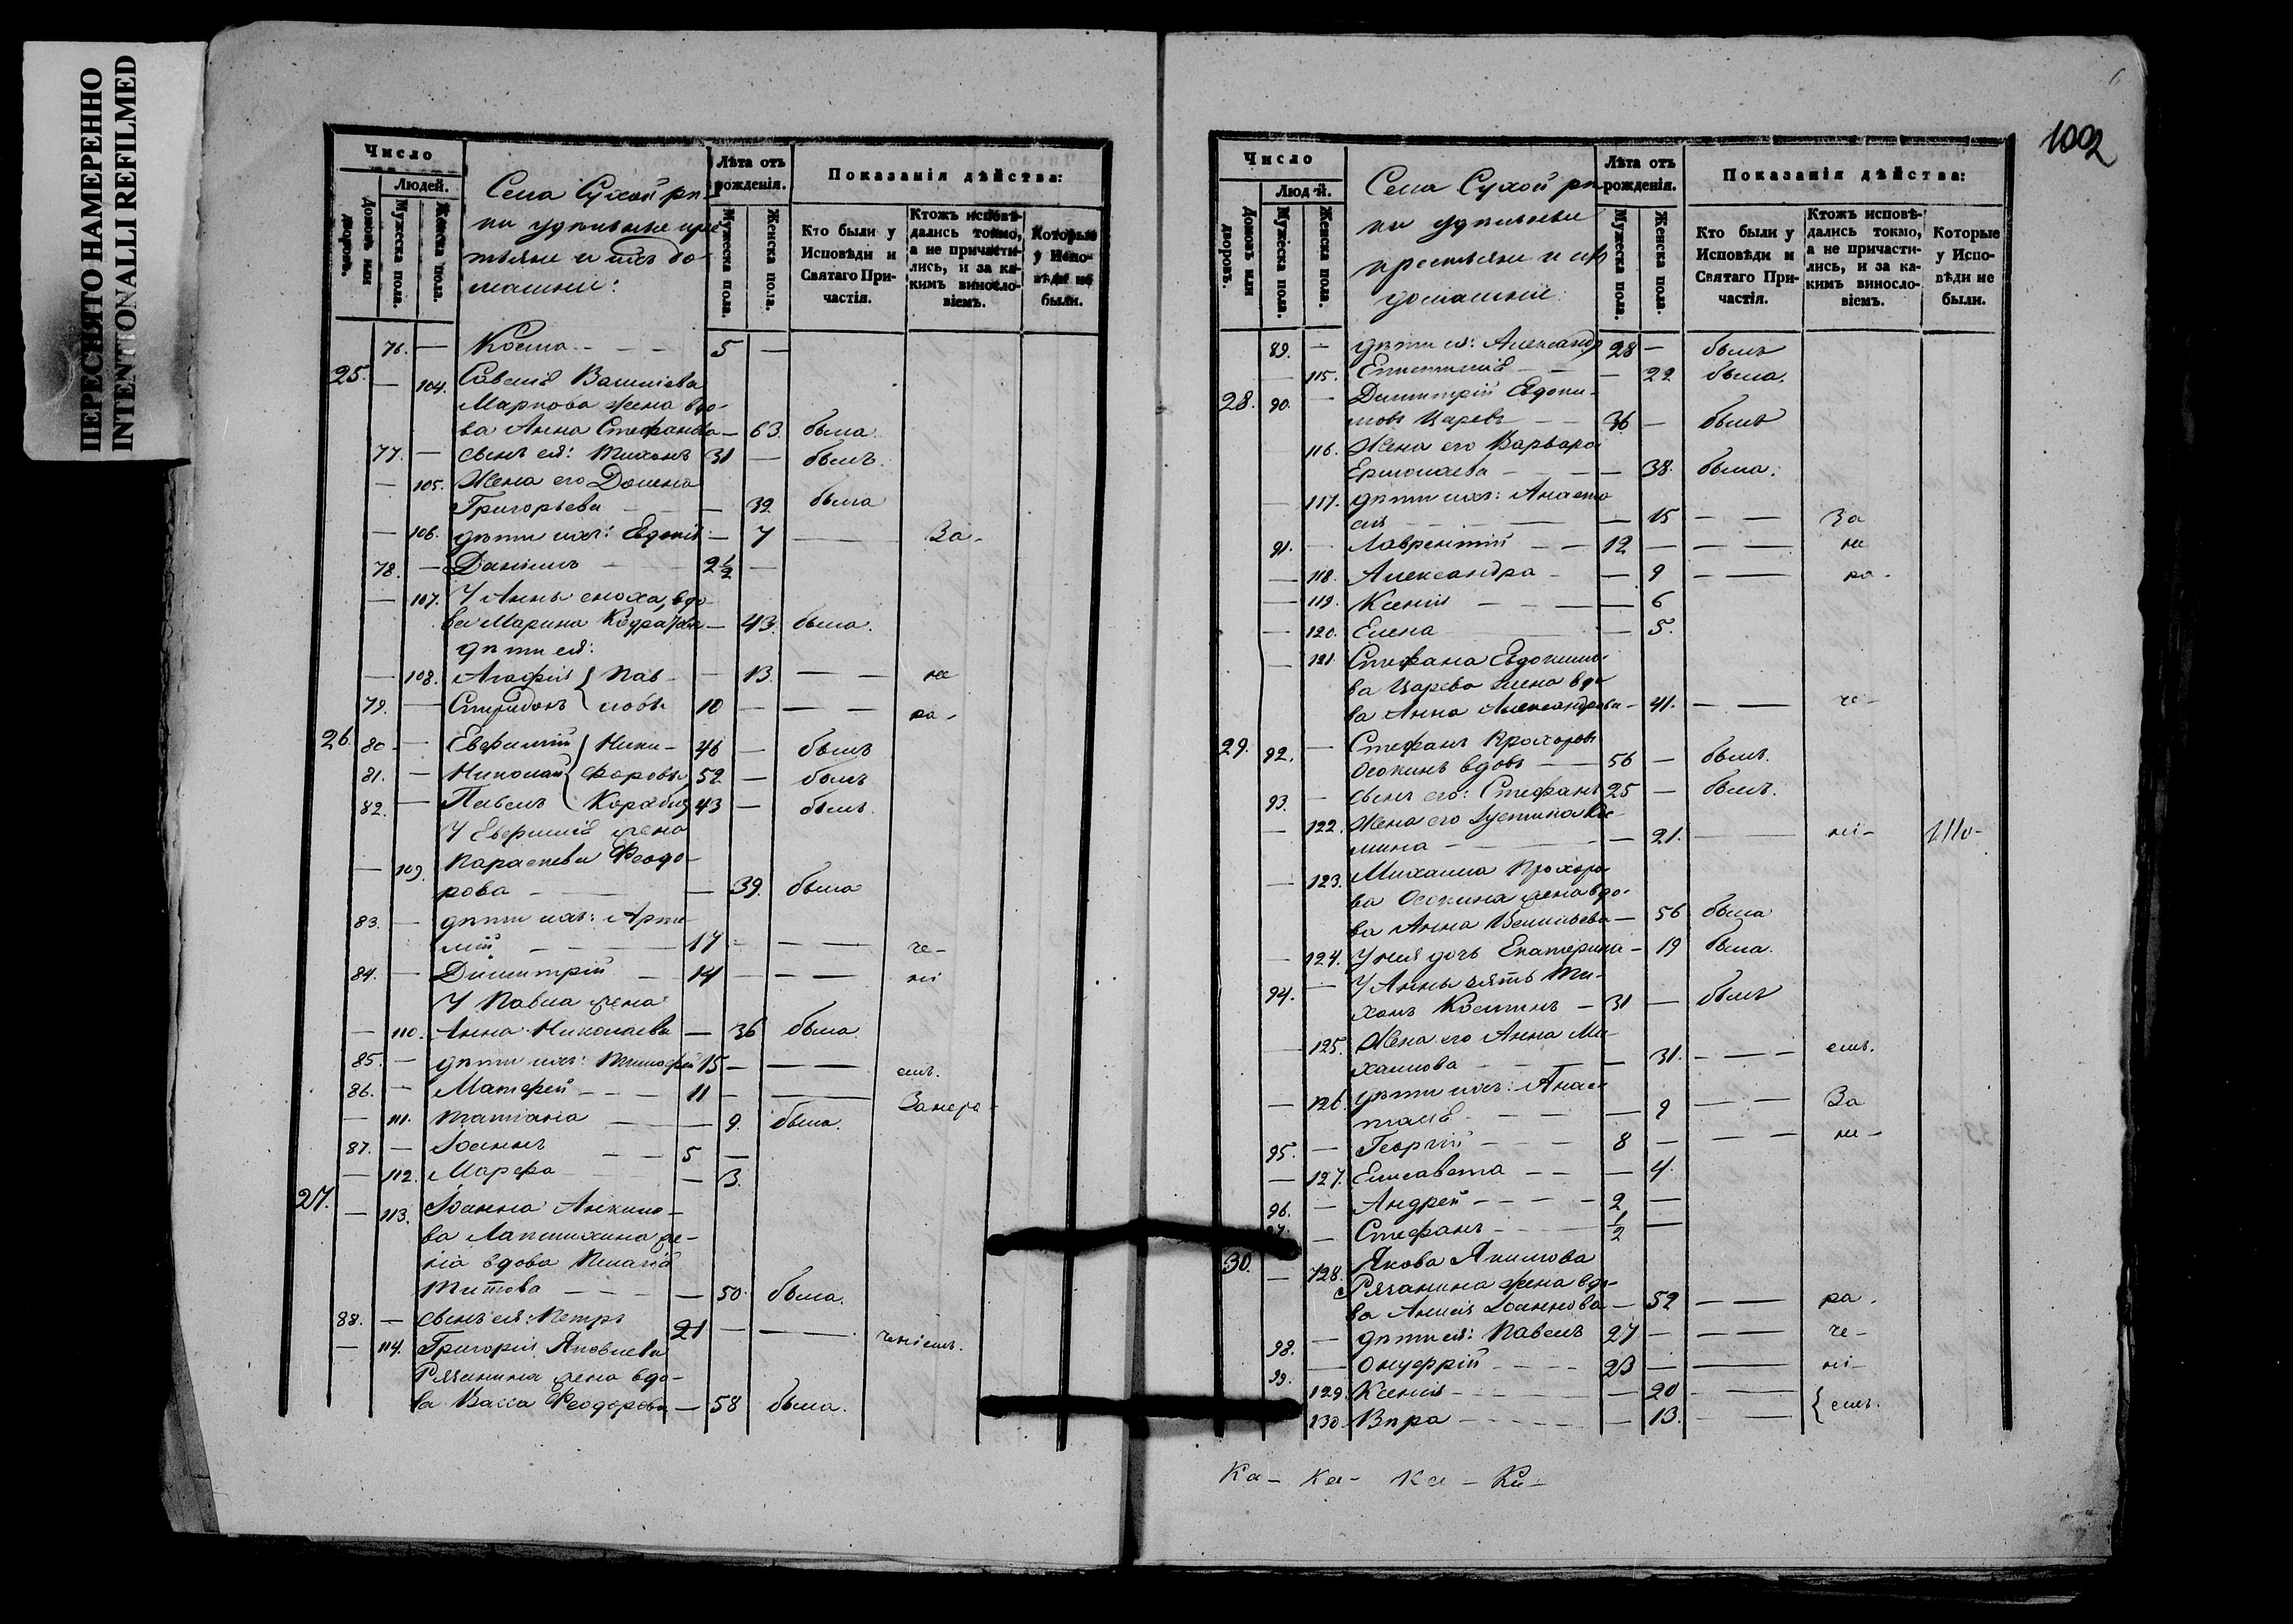 ПЕРЕСНЯТО НАМЕРЕННО
INTENTIONALLI REFILMED
Число
Людей.
Домовъ или дворовъ.
Мужеска пола.
Женска пола.
Села Сухой рѣ-
ки удѣльные кре-
стьяне и ихъ до-
машніе:
Лѣта отъ рожденія.
Мужеска пола.
Женска пола.
Показанія дѣйства:
Кто были у Исповѣди и Святаго При-частія.
Ктожъ исповѣ-дались токмо, а не причасти-лись, и за ка-кимъ винослo-віемъ.
Которые у Испо-вѣди не были.
76. — Косма 5 —
25. — 104. Савелія Василіева
Маркова жена вдо-
ва Анна Стефанова — 63. была.
77. — сынъ ея: Тихонъ 31 — былъ.
— 105. Жена его Домна
Григорьева — 32 была
— 106. дѣти ихъ: Евдокія — 7 — За-
78. — Даніилъ 2½ —
— 107. У Анны сноха, вдо-
ва Марина Кодратова — 43. была.
дѣти ея:
— 108. Агафія { Пав- — 13. — — не
79. — Спиридонъ { ловы 10 — — — ра-
26. 80. — Евфимій { Ники- 46 — былъ
81. — Николай { форовы 52 — былъ
82. — Павелъ { 43 — былъ.
У Евфимія жена
— 109. Параскева Феодо-
рова — 39. была
83. — дѣти ихъ: Арте-
мій 17 — — — че-
84. — Димитрій 14 — — — ні
У Павла жена
— 110. Анна Николаева — 36 была.
85. — дѣти ихъ: Тимофей 15 — — — емъ.
86. — Матфей 11 — — Занера-
— 111. Татіана — 9. была.
87. — Іоаннъ 5 —
— 112. Марфа — 3.
27. — 113. Іоанна Акимо-
ва Лапшихина же-
на вдова Пелагія
Титова — 50. была.
88. — сынъ ея: Петръ 21 — — ченіемъ.
— 114. Григорія Яковлева
Рязанина жена вдо-
ва Васса Феодорова — 58 была.
1002
Число
Людей.
Домовъ или дворовъ.
Мужеска пола.
Женска пола.
Села Сухой рѣ-
ки удѣльные
крестьяне и ихъ
домашніе:
Лѣта отъ рожденія.
Мужеска пола.
Женска пола.
Показанія дѣйства:
Кто были у Исповѣди и Святаго При-частія.
Ктожъ исповѣ-дались токмо, а не причасти-лись, и за ка-кимъ винослo-віемъ.
Которые у Испо-вѣди не были.
89. — дѣти ея: Александръ 28 — былъ
— 115. — 22 была.
28. 90. — Димитрій Евдоки-
мовъ Царевъ 36 — былъ
116. Жена его Варвара
Ермолаева — 38. была.
— 117. дѣти ихъ: Анаста
сія — 15 — — За
91. — Лаврентій 12 — — — не
— 118. Александра — 9 — — ра-
— 119. Ксенія — 6
— 120. Елена — 5.
— 121 Стефана Евдокимо-
ва Царева жена вдо-
ва Анна Александрова — 41. — — че-
29. 92. — Стефанъ Прохоровъ
Осокинъ вдовъ 56 — былъ.
93. — сынъ его: Стефанъ 25 — былъ.
— 122. Жена его Іустина Кос-
мина — 21. — ні-
— 123. Михаила Прохоро-
ва Осокина жена вдо-
ва Анна Васильева — 56 была
— 124. У нея дочь Екатерина — 19 была.
94. — У Анны зять Ти-
хонъ Костинъ 31 — былъ
— 125. Жена его Анна Ми-
хаилова — 31. — — емъ.
— 126. дѣти ихъ: Анас
тасія — 9 — — За
95. — Георгій 8 — — — не-
— 127. Елисавета — 4.
96. — Андрей 2 —
97. — Стефанъ ½ —
30. — 128. Якова Акимова
Рязанина жена вдо-
ва Анисія Іоаннова — 52 — — ра-
98. — дѣти ея: Павелъ 27 — — — че-
99. — Онуфрій 23 — — ні-
129. Ксенія — 20 — — { емъ.
130. Вѣра — 13. — —
Ка- Ка- Ка-